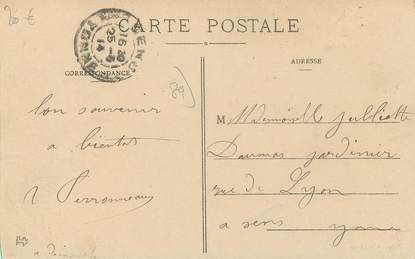 20 €
CARTE POSTALE
CORRESPONDANCE
ADRESSE
89
bon souvenir
a bientot
Perronneau
M Mademoiselle Julliette
Daumas jardinier
rue de Lyon
a sens yonne